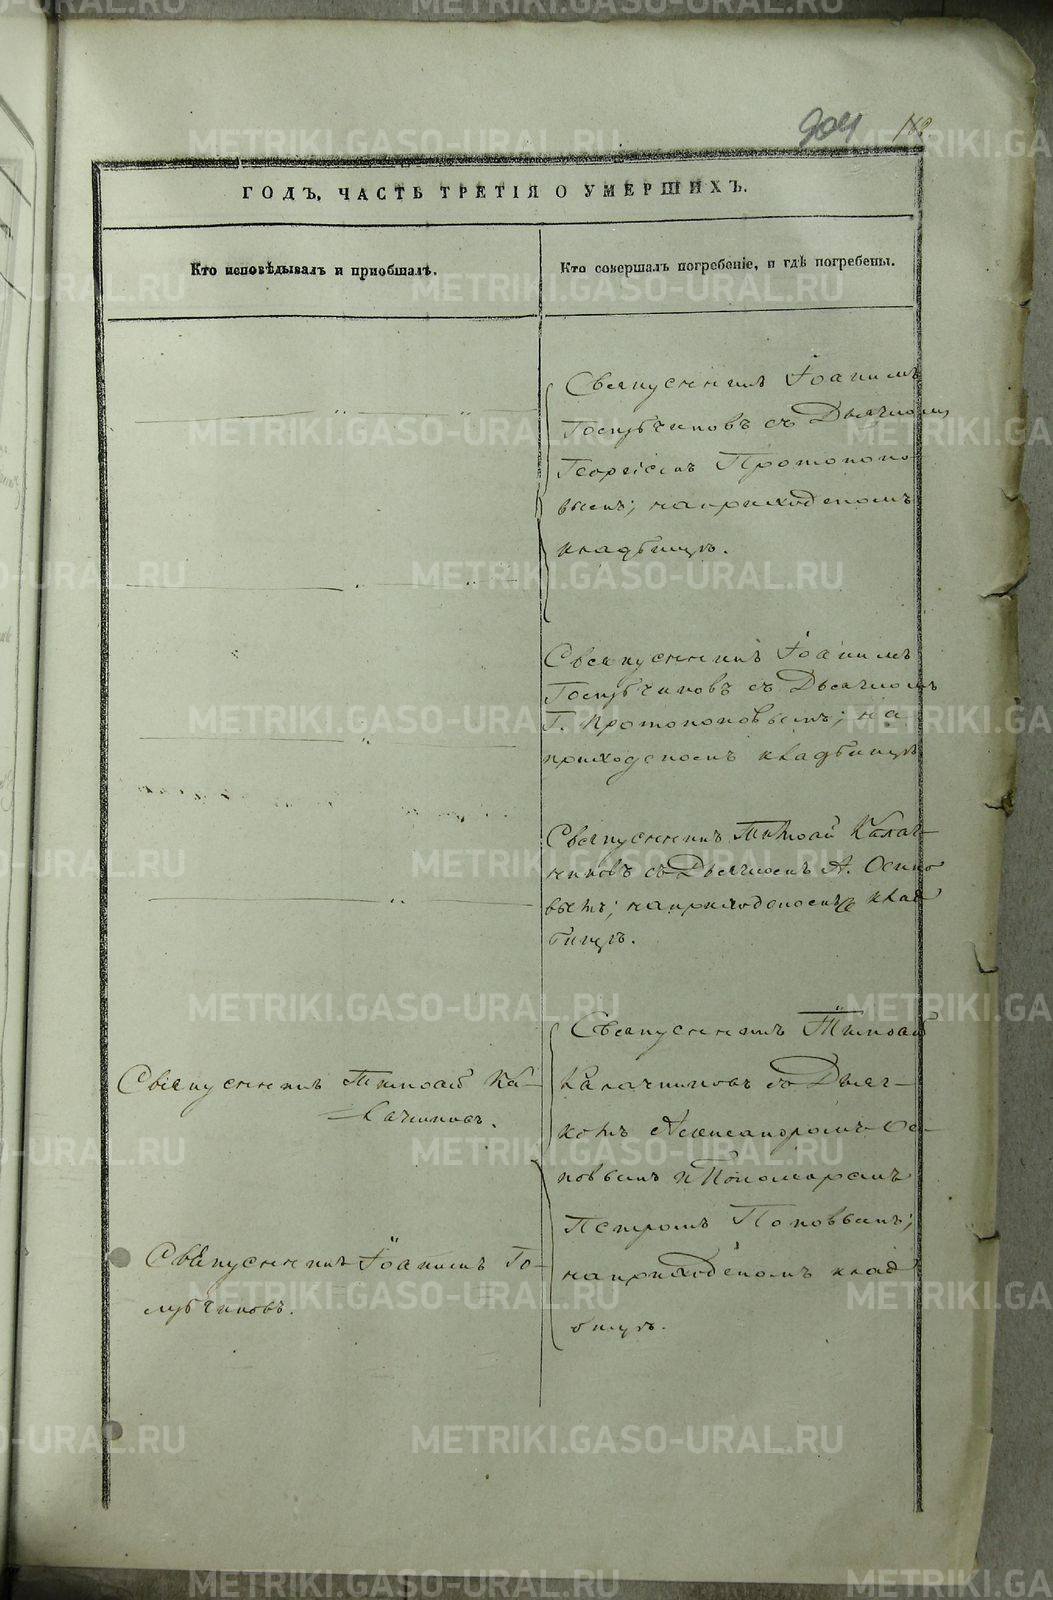 904
ГОДЪ, ЧАСТЬ ТРЕТІЯ О УМЕРШИХЪ.
Кто исповѣдывалъ и приобщалъ.
Кто совершалъ погребеніе, и гдѣ погребены.
Священникъ Іоаннъ
Голубчиковъ съ Дьячкомъ
Георгіемъ Протопопо-
вымъ; на приходскомъ
кладбищѣ.
Священникъ Іоаннъ
Голубчиковъ съ Дьячкомъ
Г. Протопоповымъ; на
приходскомъ кладбищѣ
Священникъ Тимофей Калач-
никовъ съ Дьячкомъ А. Осипо
вымъ; на приходскомъ клад
бищѣ.
Священникъ Тимофей Ка-
=лачниковъ.
Священникъ Іоаннъ Го-
лубчиковъ.
Священникъ Тимофей
Калачниковъ съ Дьяч-
комъ Александромъ Ос-
повымъ и Пономаремъ
Петромъ Поповымъ;
на приходскомъ клад
бищѣ.
METRIKI.GASO-URAL.RU